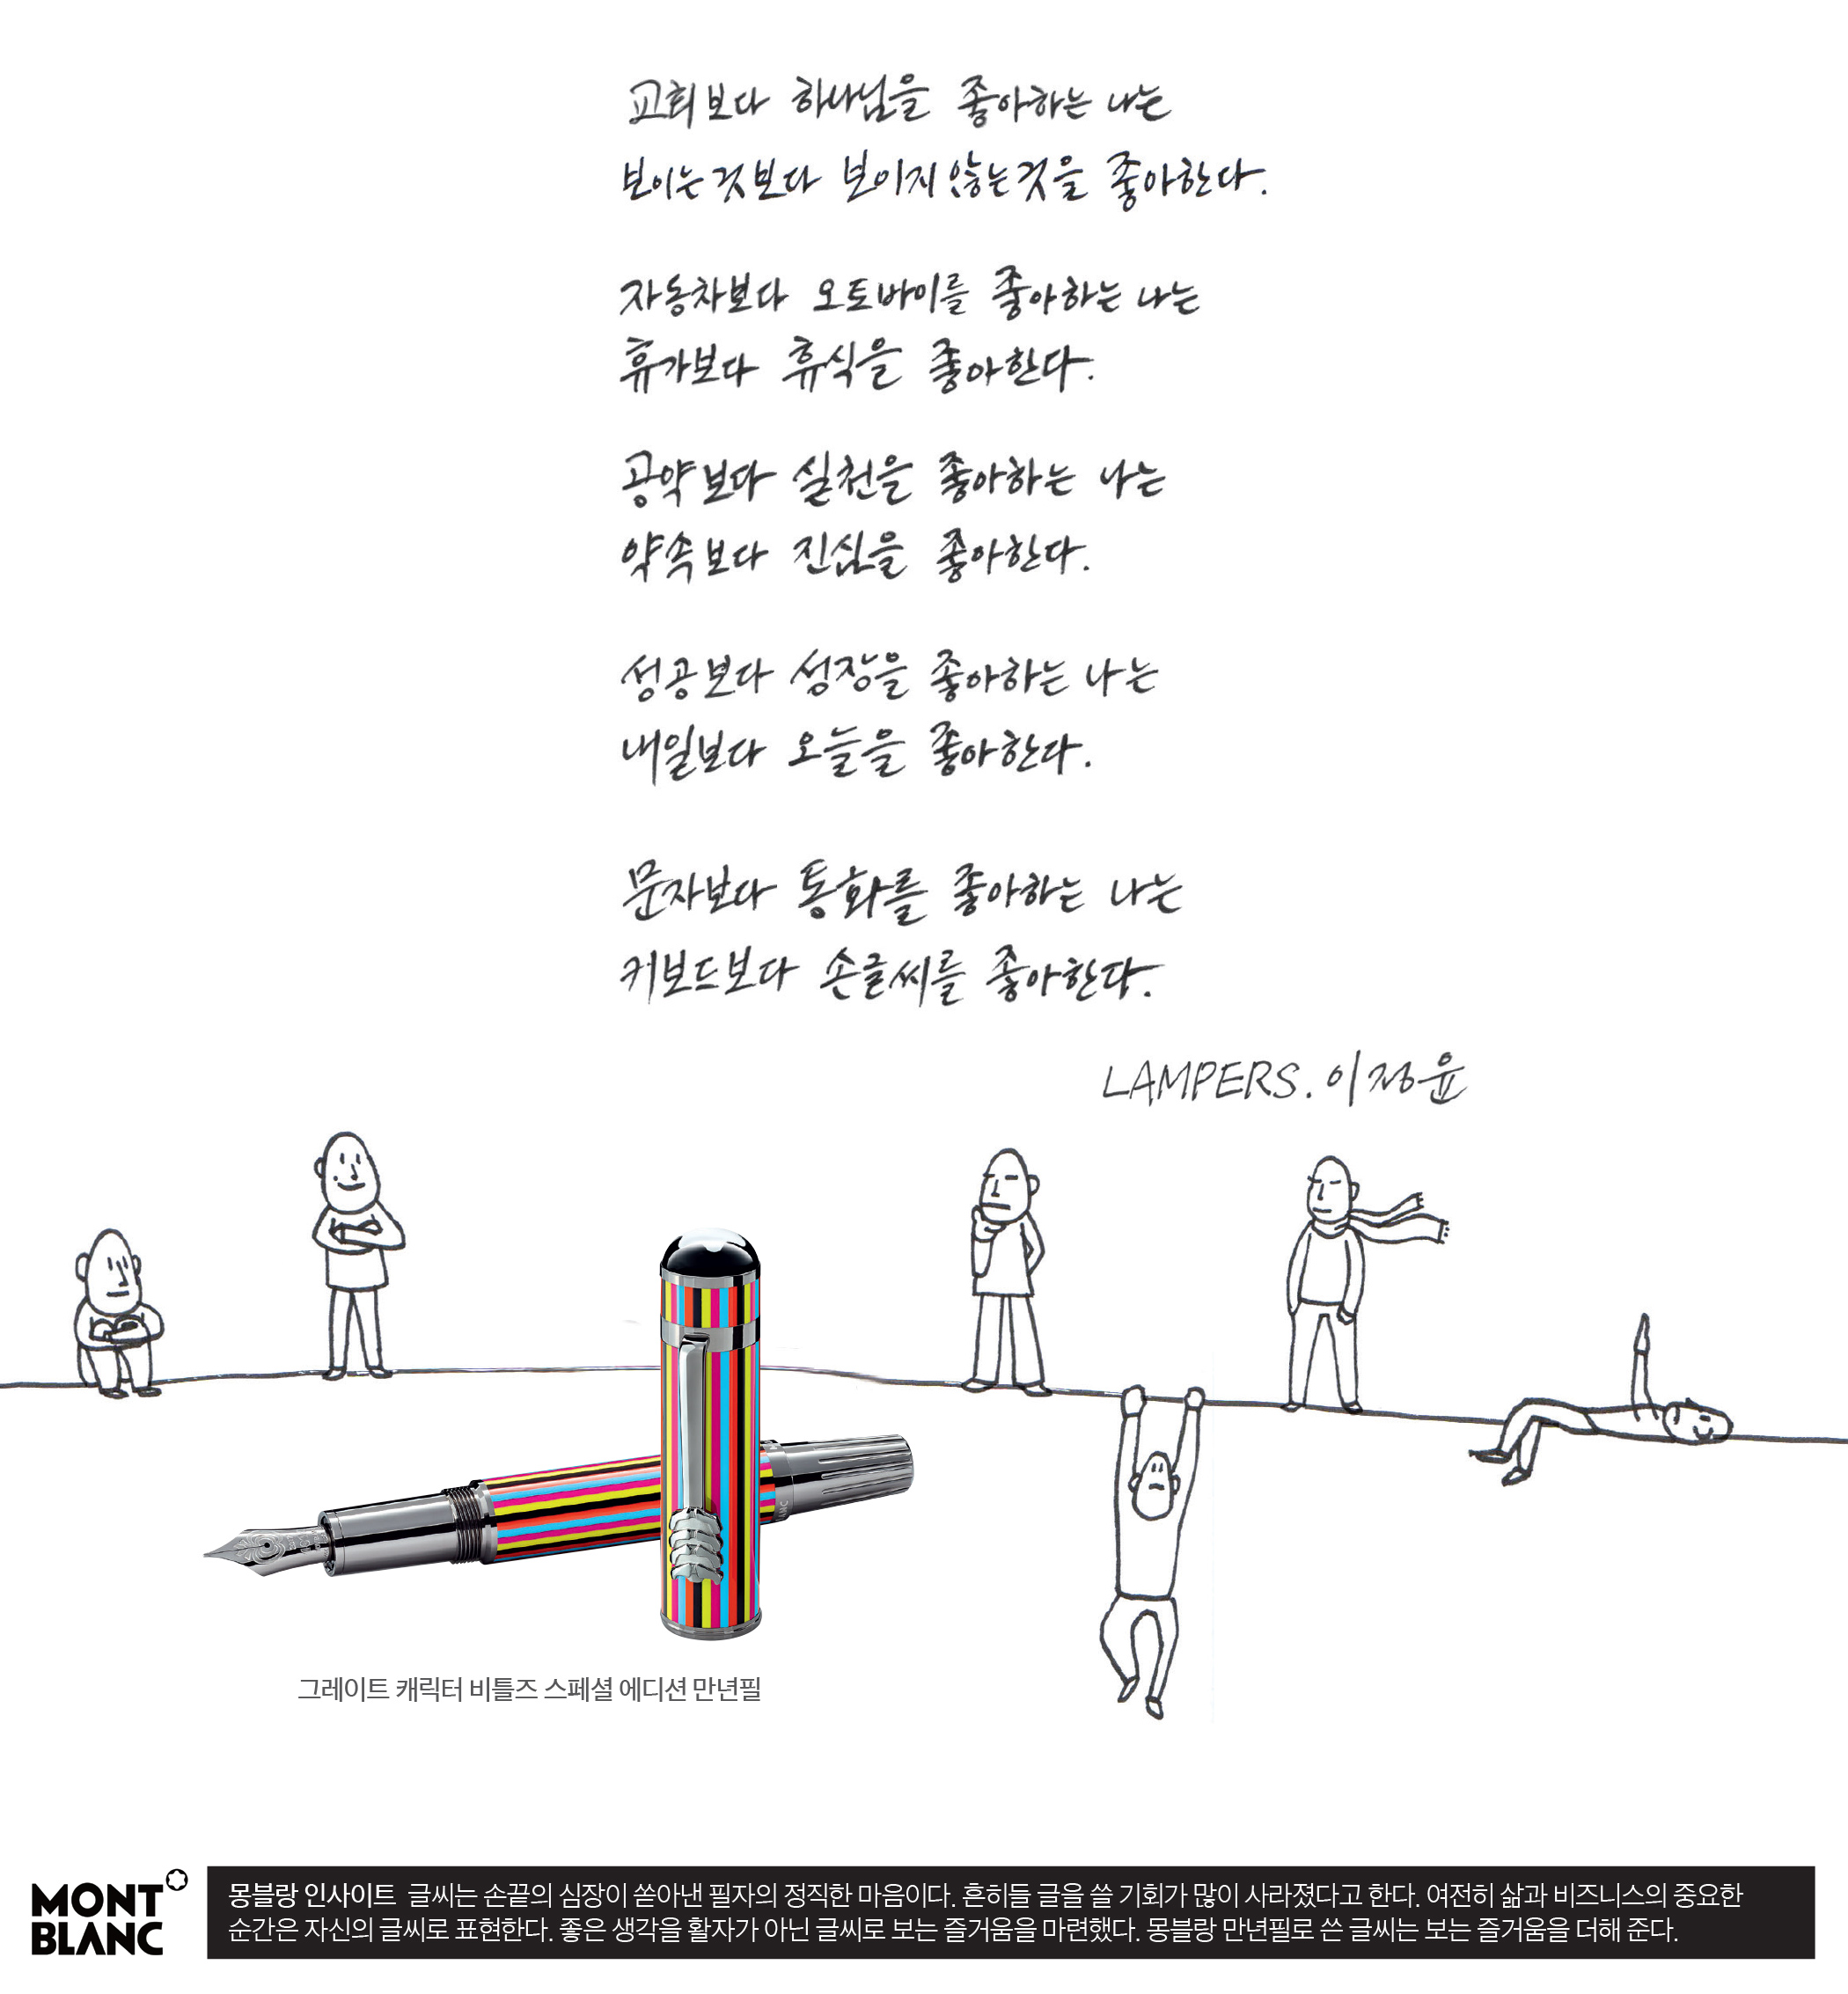 교회보다 하나님을 좋아하는 나는
보이는것보다 보이지않는것을 좋아한다.
자동차보다 오토바이를 좋아하는 나는
휴가보다 휴식을 좋아한다.
공약보다 실천을 좋아하는 나는
약속보다 진심을 좋아한다.
성공보다 성장을 좋아하는 나는
내일보다 오늘을 좋아한다.
문자보다 통화를 좋아하는 나는
키보드보다 손글씨를 좋아한다.
LAMPERS. 이정윤
그레이트 캐릭터 비틀즈 스페셜 에디션 만년필
MONT
BLANC
몽블랑 인사이트 글씨는 손끝의 심장이 쏟아낸 필자의 정직한 마음이다. 흔히들 글을 쓸 기회가 많이 사라졌다고 한다. 여전히 삶과 비즈니스의 중요한
순간은 자신의 글씨로 표현한다. 좋은 생각을 활자가 아닌 글씨로 보는 즐거움을 마련했다. 몽블랑 만년필로 쓴 글씨는 보는 즐거움을 더해 준다.